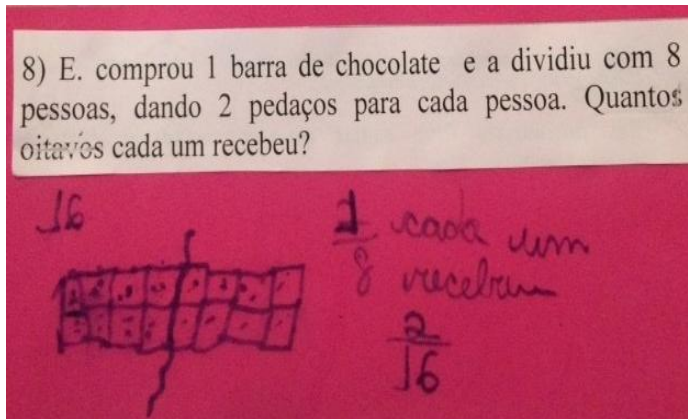 8) E. comprou 1 barra de chocolate e a dividiu com 8
pessoas, dando 2 pedaços para cada pessoa. Quantos
oitavos cada um recebeu?
16
1/8 cada um
2/16